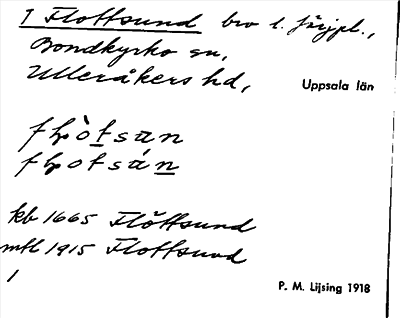 1 Flottsund bro l. färjpl.,
Bondkyrko sn,
Ulleråkers hd,
Uppsala län
kb 1665 Flöttsund
mtl 1915 Flottsund
1
P. M. Lijsing 1918